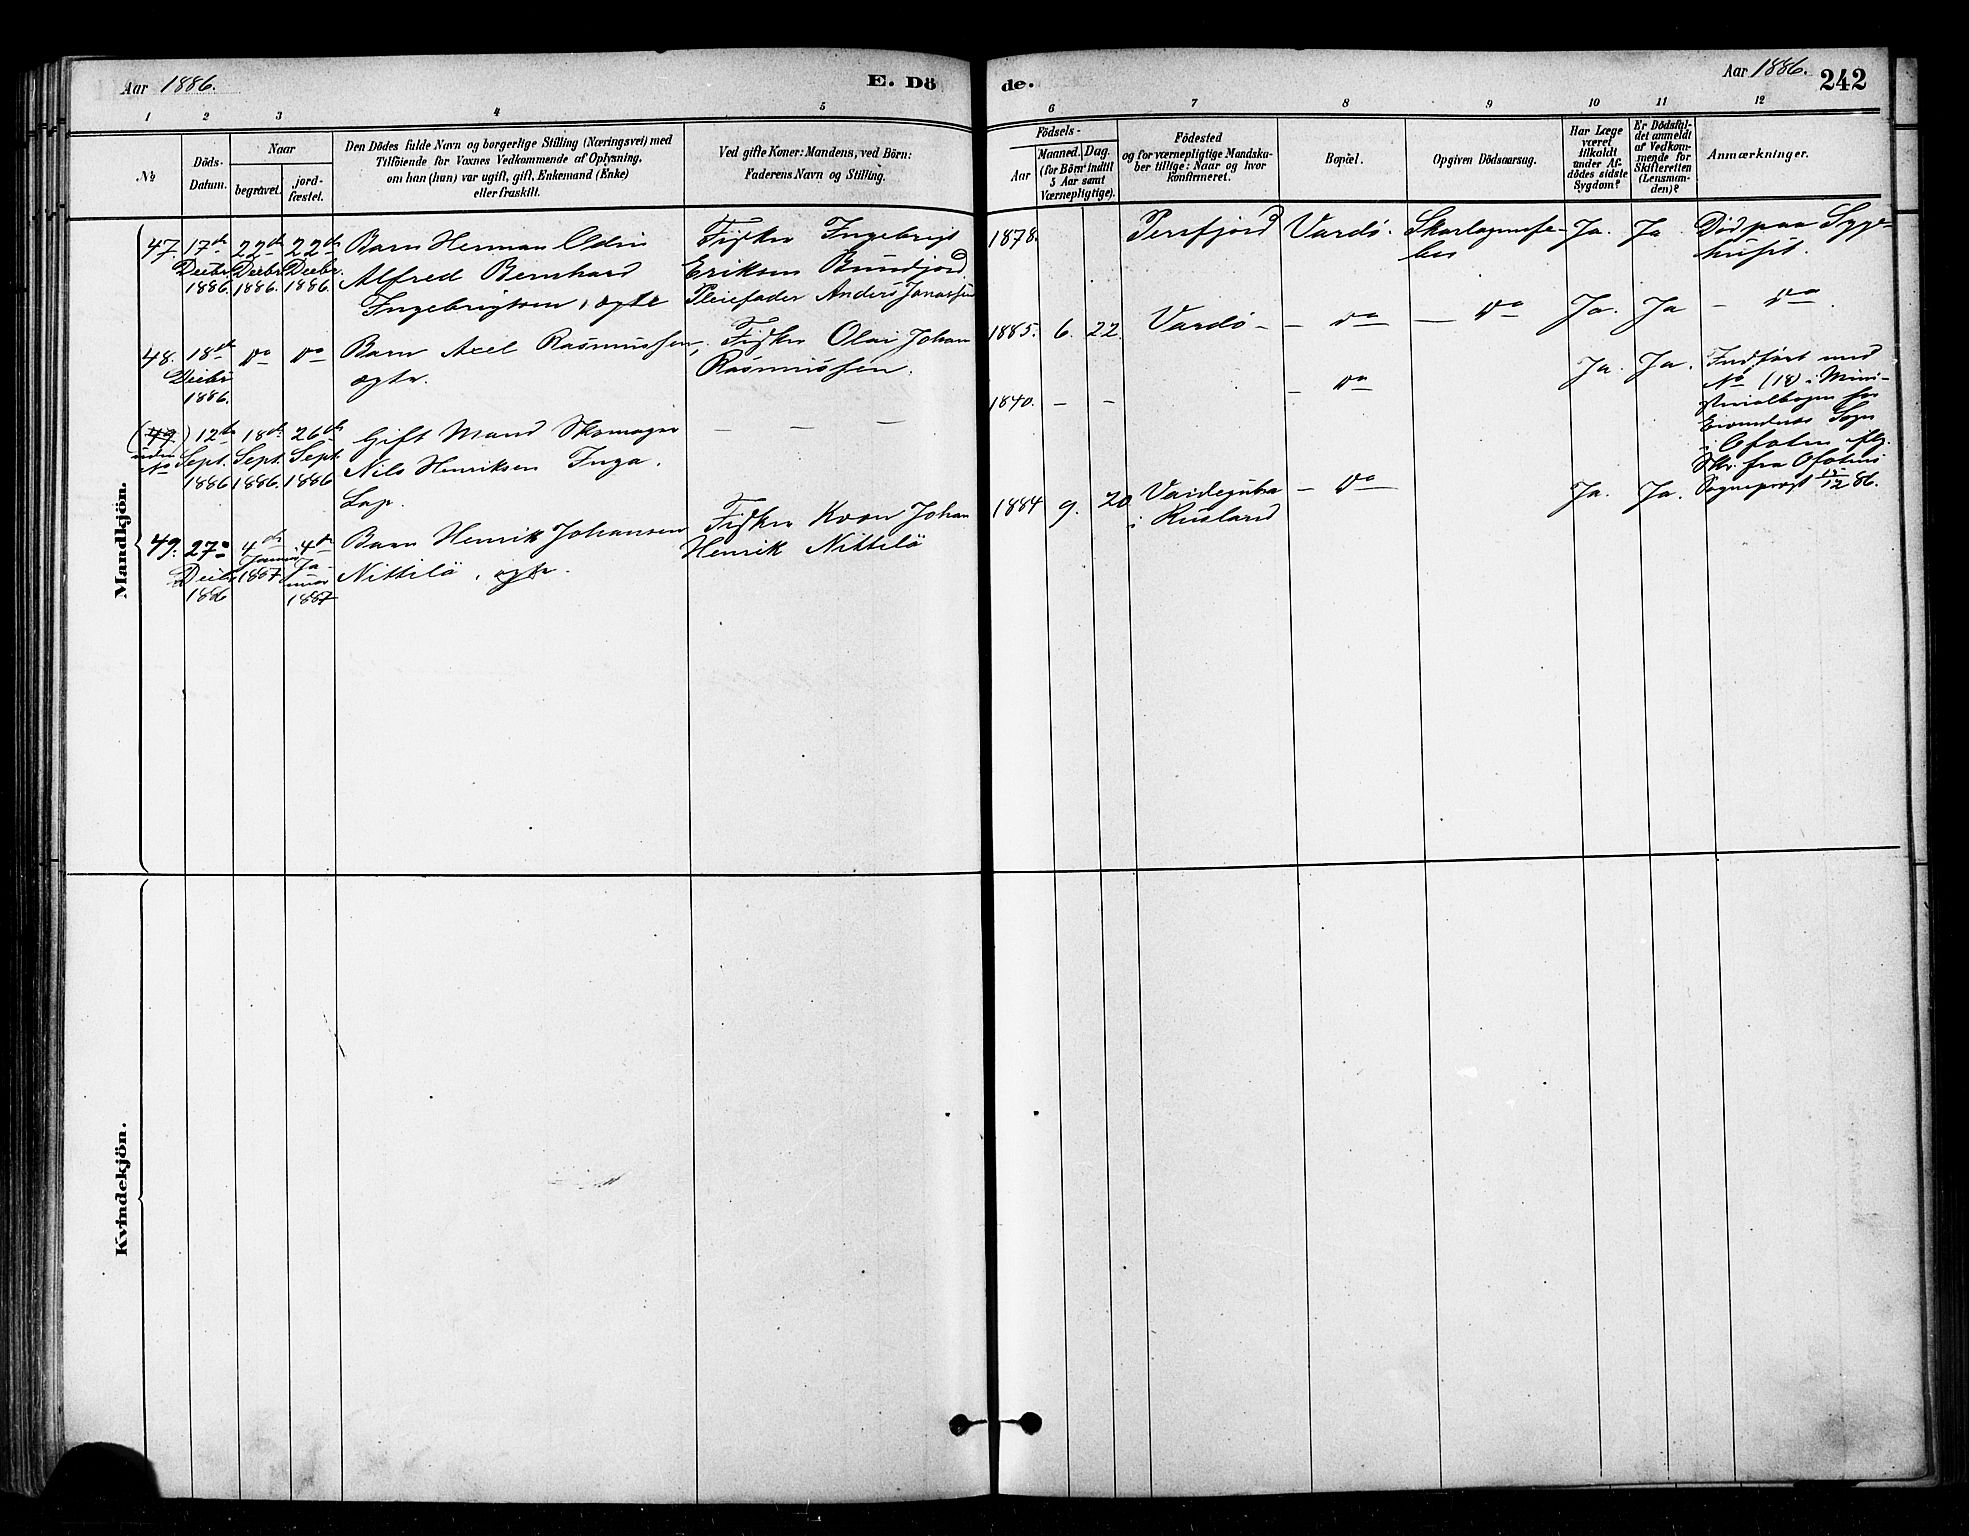 Aar 1886.
E. Dö
de.
Aar 1886.
242
1 2 3 4 5 6 7 8 9 10 11 12
No
Döds-
Datum.
Naar
begravet.
jord-
fæstet.
Den Dödes fulde Navn og borgerlige Stilling (Næringsvei) med
Tilföiende for Voxnes Vedkommende af Oplysning,
om han (hun) var ugift, gift, Enkemand (Enke)
eller fraskilt.
Ved gifte Koner: Mandens, ved Börn:
Faderens Navn og Stilling.
Födsels-
Aar
Maaned. Dag.
(for Börn indtil
5 Aar samt
Værnepligtige).
Födested
og for værnepligtige Mandska-
ber tillige: Naar og hvor
konfirmeret.
Bopæl.
Opgiven Dödsaarsag.
Har Læge
været
tilkaldt
under Af-
dödes sidste
Sygdom?
Er Dödsfal-
det anmeldt
af Vedkom-
mende for
Skifteretten
(Lensman-
den)?
Anmærkninger.
Mandkjön.
47. 17de Decbr. 1886. 22de Decbr. 1886. 22de Decbr. 1886.
Barn Herman Odin
Alfred Bernhard
Ingebrigtsen, ægte
Fisker Ingebrigt
Eriksen Bundjord.
Pleiefader Anders Jonassen
1878. Persfjord Vardö. Skarlagensfe-
ber
Ja. Ja Död paa Syge-
huset.
48. 18de Decbr 1886. do do
Barn Axel Rasmussen,
ægte.
Fisker Olai Johan
Rasmussen.
1885. 6. 22. Vardö - - do - do Ja. Ja - do.
(49) uden No 12de Sept. 1886 18de Sept. 1886. 26de Sept. 1886
Gift Mand Skomager
Nils Henriksen Inga.
Lap.
- - -
1840. - - - do Ja. Ja.
Indført med
No (18) i Mini-
sterialbogen for
Evendnes Sogn
i Ofoten flg.
Skr. fra Ofotens
Sogneprest 15/12 86.
49. 27de Decbr 1886 4de Januar 1887 4de Ja-
nuar 1887
Barn Henrik Johansen
Nittilö, ægte.
Fisker Kvæn Johan
Henrik Nittilö
1884 9. 20 Vaideguba
i Rusland
- do Ja. Ja.
Kvindekjön.